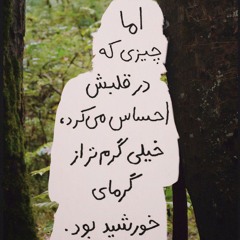 اما
چیزی که
در قلبش
احساس می‌کرد،
خیلی گرم‌تر از
گرمای
خورشید بود.